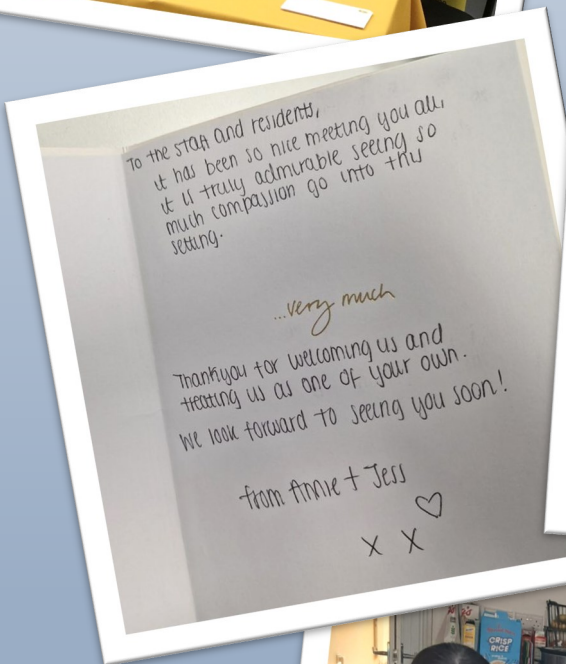 To the staff and residents,
it has been so nice meeting you all,
it is truly admirable seeing so
much compassion go into this
setting.
...very much
Thankyou for welcoming us and
treating us as one of your own.
We look forward to seeing you soon!
from Annie + Jess
X X
CRISP
RICE